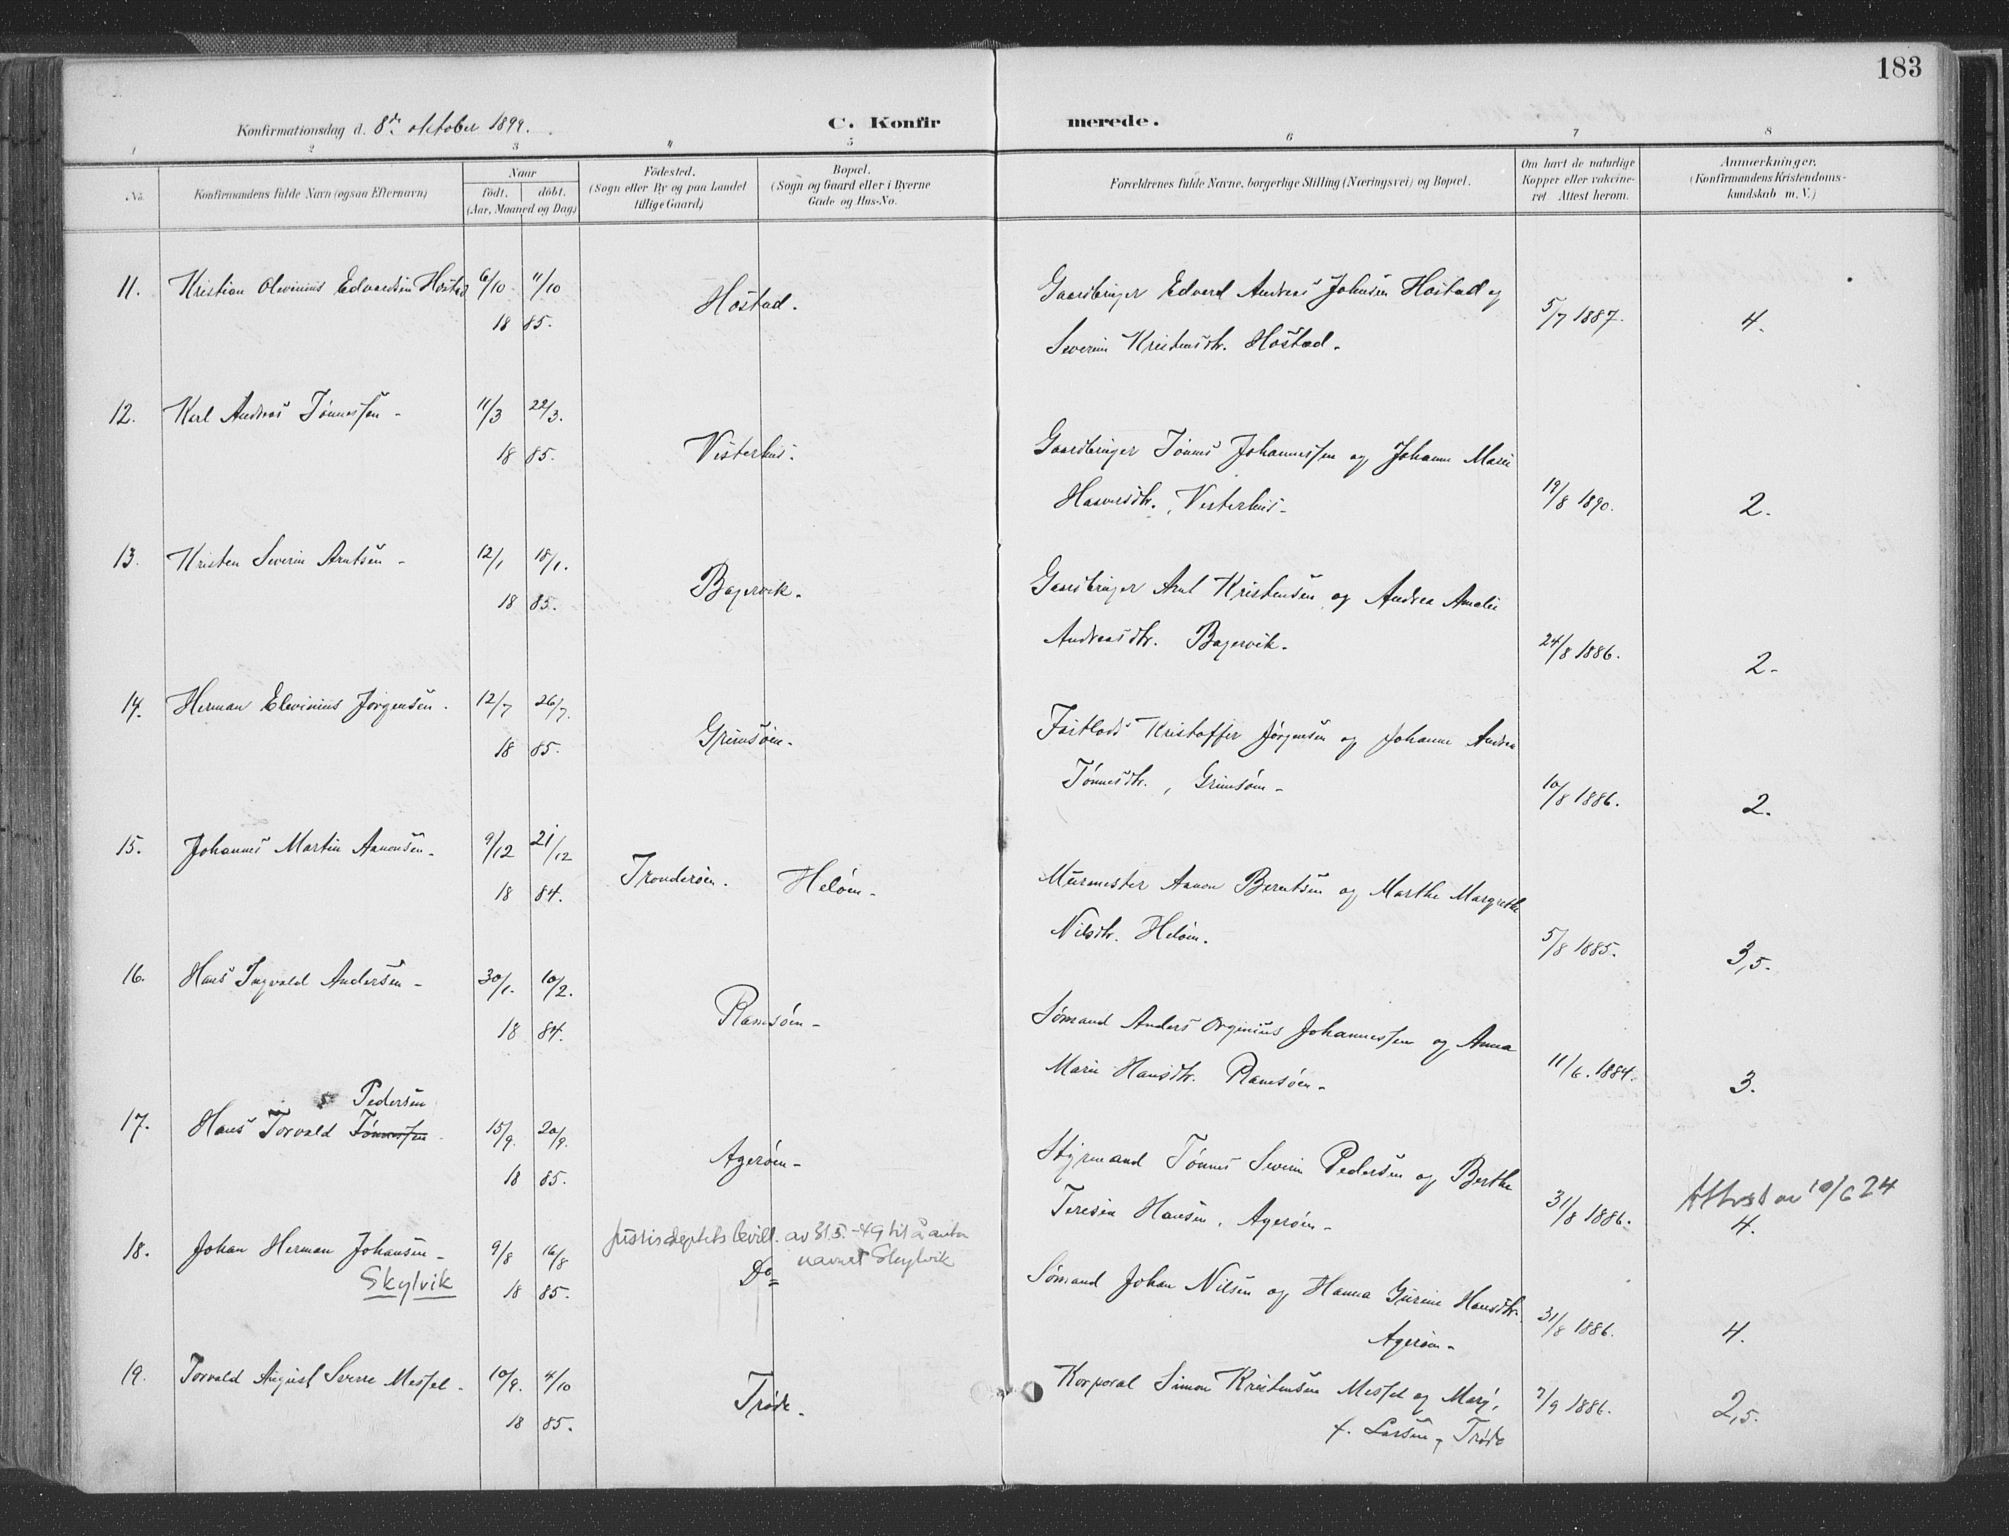 183
Konfirmationsdag d. 8de oktober 1899.
C. Konfirmerede.
1 2 3 4 5 6 7 8
No.
Konfirmandens fulde Navn (ogsaa Efternavn)
Naar
födt. döbt.
(Aar, Maaned og Dag)
Födested.
(Sogn eller By og paa Landet
tillige Gaard)
Bopæl.
(Sogn og Gaard eller i Byerne
Gade og Hus-No.
Forældrenes fulde Navne, borgerlige Stilling (Næringsvei) og Bopæl.
Om havt de naturlige
Kopper eller vakcine-
ret Attest herom.
Anmærkninger.
(Konfirmandens Kristendoms-
kundskab m. V.)
11. Kristian Olevinius Edvardsen Høstad 6/10 11/10
18 85.
Høstad.
Gaardbruger Edvard Andreas Johnsen Høstad og
Severine Kristensdtr. Høstad.
5/7 1887.
4.
12. Karl Andreas Tönnessen 11/3 22/3.
18 85.
Vesterhus.
Gaardbruger Tönnes Johannessen og Johanne Marie
Haavorsdtr., Vesterhus.
19/8 1890.
2.
13. Kristen Severin Arntsen 12/1 18/1.
18 85.
Bagervik.
Gaardbruger Arnt Kristensen og Andrea Amalie
Andreasdtr. Bagervik.
24/8 1886.
2.
14. Herman Elevinius Jørgensen. 12/7 26/7.
18 85.
Grimsöen.
Kristoffer Jørgensen og Johanne Andrea
Tönnesdtr., Grimsöen.
10/8 1886.
2.
15. Johannes Martin Aanonsen. 9/12 21/12
18 84.
Tronderöen. Helöen.
Murmester Aanon Berntsen og Marthe Margrethe
Nilsdtr. Helöen.
5/8 1885.
3,5.
16. Hans Ingvald Andersen 30/1. 10/2.
18 84.
Ramsöen
Sømand Anders Orginius Johannessen og Anna
Marie Hansdtr. Ramsöen.
11/6. 1884.
3.
Pedersen
17. Hans Torvald Tönnessen 15/9. 20/9.
18 85.
Agerøen
Styrmand Tönnes Severin Pedersen og Berthe
Teresia Hansen, Agerøen
31/8 1886.
Attest av 10/6 24
4.
18. Johan Herman Johansen 9/8 16/8
Skylvik
18 85.
Justisdeptets bevill. av 31.5.-49 til å anta
navnet Skylvik
Do
Sømand Johan Nilsen og Hanna Gurine Hansdtr.
Agerøen
31/8 1886.
4.
19. Torvald August Sverre Messel 10/9. 4/10
18 85.
Trøde.
Korporal Simon Kristensen Messel og Marg.
f. Larsen, Trøde
7/9 1886.
2,5.